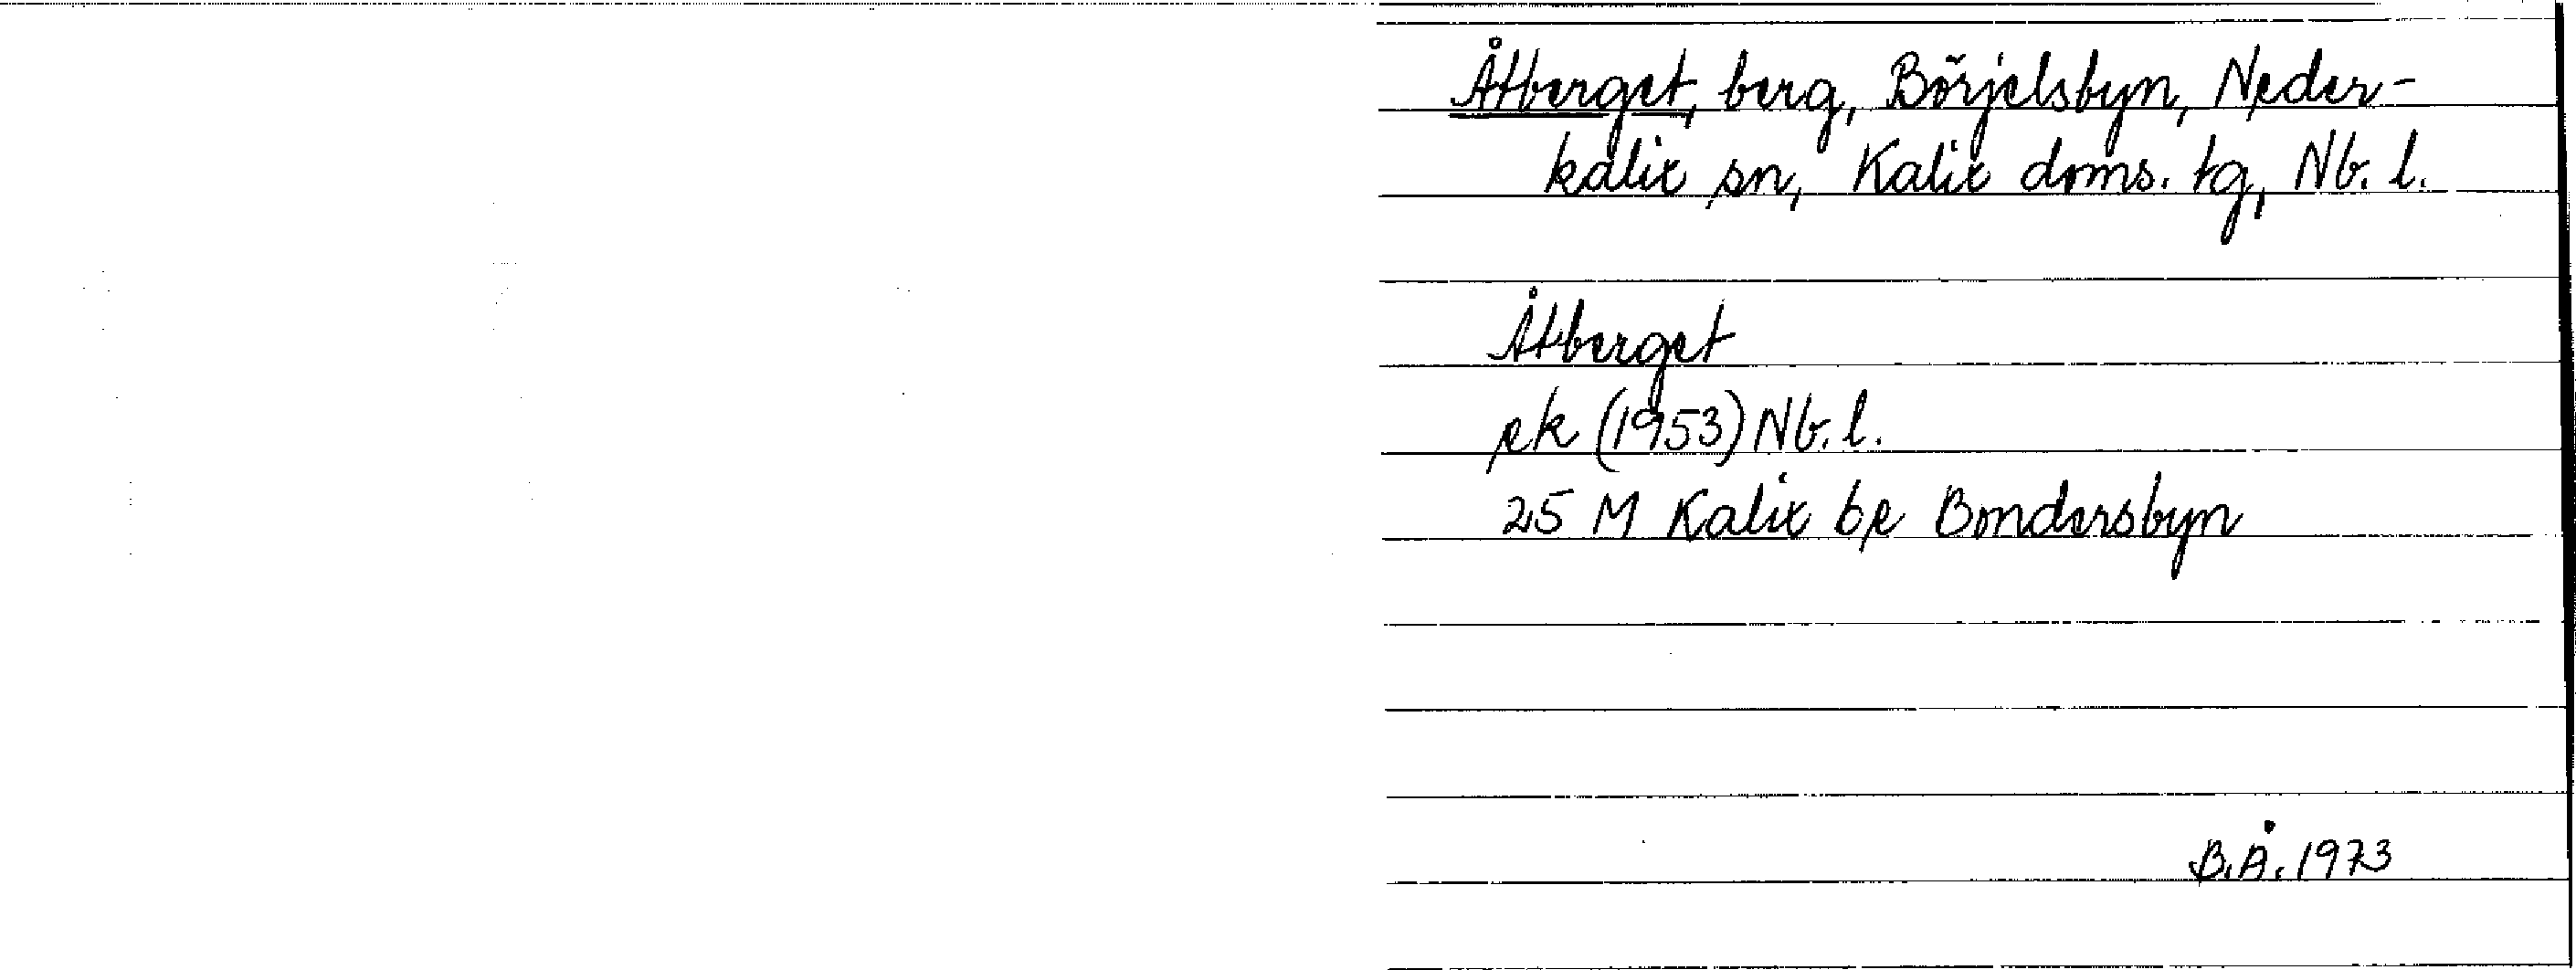 Åtberget, berg, Börjelsbyn, Neder-
kalix sn, Kalix doms. tg, Nb. l.
Åtberget
ek (1953) Nb. l.
25 M Kalix be Bondersbyn
B.Å. 1973